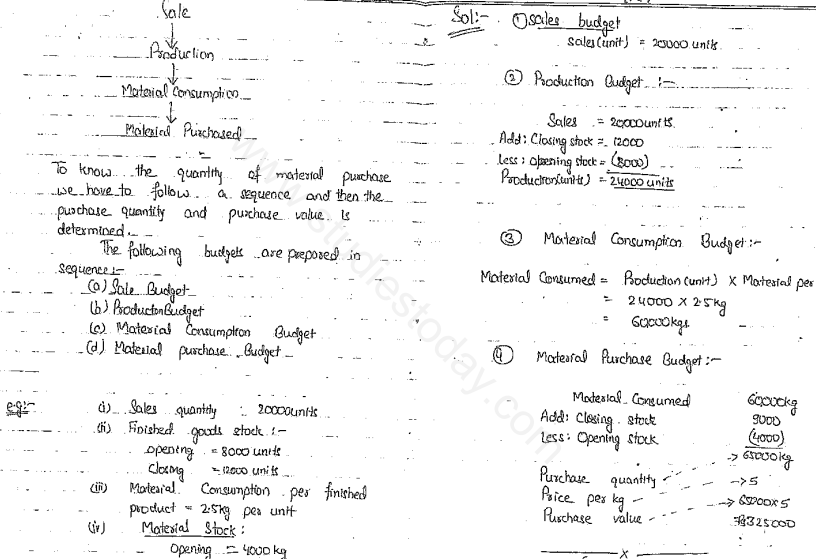 Sale
Production
Material Consumption
Material Purchased
To know the quantity of material purchase
we have to follow a sequence and then the
purchase quantity and purchase value is
determined.
The following budgets are prepared in
sequence:-
(a) Sale Budget
(b) Production Budget
(c) Material Consumption Budget
(d) Material purchase Budget
e.g:-
(i) Sales quantity : 20000 units
(ii) Finished goods stock :-
opening = 8000 units
Closing = 12000 units
(iii) Material Consumption per finished
product = 2.5kg per unit
(iv) Material Stock :
Opening = 4000 kg
Sol:- ① Sales budget
Sales (unit) = 20000 units
② Production Budget :-
Sales = 20000 units.
Add: Closing stock = 12000
Less: opening stock = (8000)
Production(units) = 24000 units
③ Material Consumption Budget :-
Material Consumed = Production (unit) X Material per
= 24000 X 2.5kg
= 60,000kgs
④ Material Purchase Budget :-
Material Consumed 60,000kg
Add: Closing stock 9000
Less: Opening stock (4000)
→ 65000kg
Purchase quantity
Price per kg → 5
Purchase value → 65000X5
325000
X
www.studiestoday.com